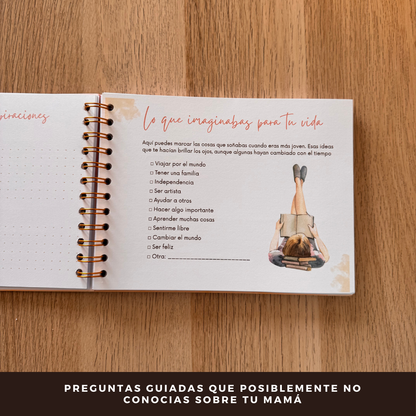 piraciones
Lo que imaginabas para tu vida
Aquí puedes marcar las cosas que soñabas cuando eras más joven. Esas ideas
que te hacían brillar los ojos, aunque algunas hayan cambiado con el tiempo
Viajar por el mundo
Tener una familia
Independencia
Ser artista
Ayudar a otros
Hacer algo importante
Aprender muchas cosas
Sentirme libre
Cambiar el mundo
Ser feliz
Otra:
PREGUNTAS GUIADAS QUE POSIBLEMENTE NO
CONOCIAS SOBRE TU MAMÁ